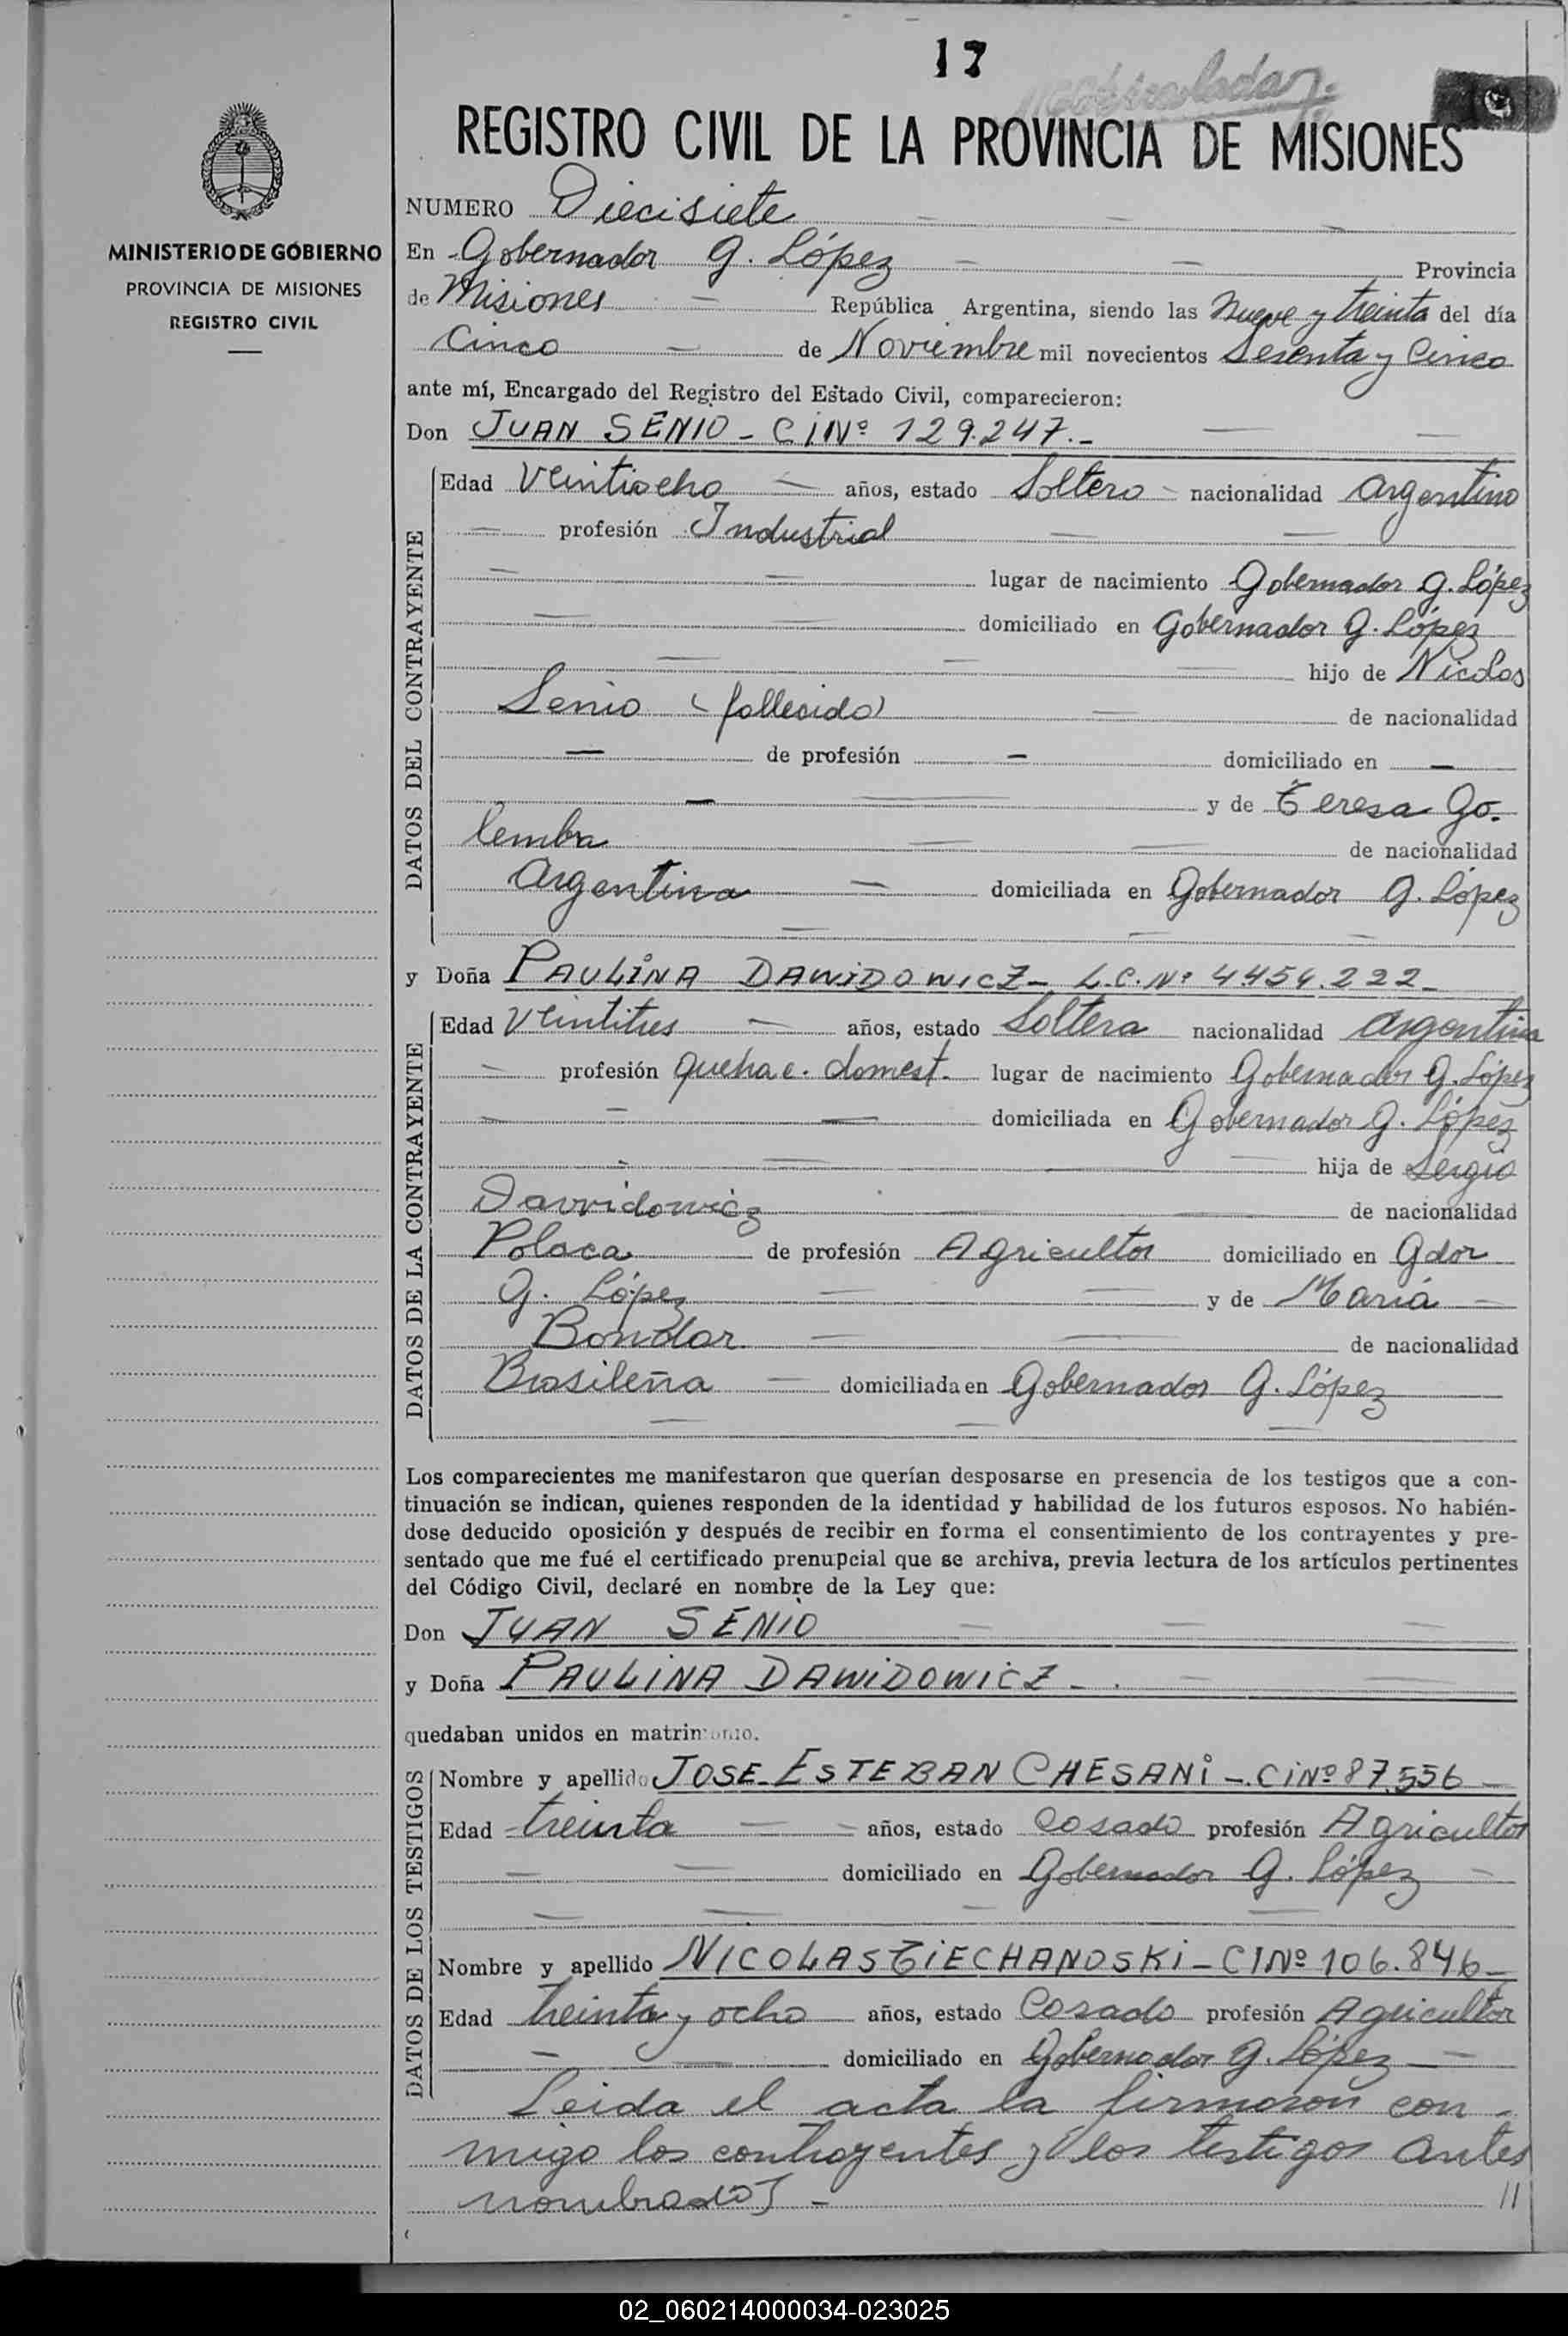 17
REGISTRO CIVIL DE LA PROVINCIA DE MISIONES
MINISTERIO DE GOBIERNO
PROVINCIA DE MISIONES
REGISTRO CIVIL
NUMERO Diecisiete
En Gobernador G. López Provincia
de Misiones República Argentina, siendo las Nueve y treinta del día
Cinco de Noviembre mil novecientos Sesenta y Cinco
ante mí, Encargado del Registro del Estado Civil, comparecieron:
Don JUAN SENIO - CiNº 129.247.-
DATOS DEL CONTRAYENTE
Edad Veintiocho años, estado Soltero nacionalidad Argentino
profesión Industrial
lugar de nacimiento Gobernador G. López
domiciliado en Gobernador G. López
hijo de Nicolas
Senio (fallecido) de nacionalidad
— de profesión — domiciliado en —
— y de Teresa Go-
lemba de nacionalidad
Argentina domiciliada en Gobernador G. López
y Doña PAULINA DAWIDOWICZ - L.C. Nº 4.454.222-
DATOS DE LA CONTRAYENTE
Edad Veintitres años, estado Soltera nacionalidad Argentina
profesión quehac. domest. lugar de nacimiento Gobernador G. López
domiciliada en Gobernador G. López
hija de Sergio
Dawidowicz de nacionalidad
Polaca de profesión Agricultor domiciliado en Gdor
G. López y de María
Bondar de nacionalidad
Brasileña domiciliada en Gobernador G. López
Los comparecientes me manifestaron que querían desposarse en presencia de los testigos que a con-
tinuación se indican, quienes responden de la identidad y habilidad de los futuros esposos. No habién-
dose deducido oposición y después de recibir en forma el consentimiento de los contrayentes y pre-
sentado que me fué el certificado prenupcial que se archiva, previa lectura de los artículos pertinentes
del Código Civil, declaré en nombre de la Ley que:
Don JUAN SENIO
y Doña PAULINA DAWIDOWICZ -
quedaban unidos en matrimonio.
DATOS DE LOS TESTIGOS
Nombre y apellido JOSE ESTEBAN CHESANI - CiNº 87.556 -
Edad treinta años, estado Casado profesión Agricultor
domiciliado en Gobernador G. López
Nombre y apellido NICOLAS TIECHANOSKI - CINº 106.846 -
Edad treinta y ocho años, estado Casado profesión Agricultor
domiciliado en Gobernador G. López
Leida el acta la firmaron con-
migo los contrayentes y los testigos antes
nombrados -
02_060214000034-023025